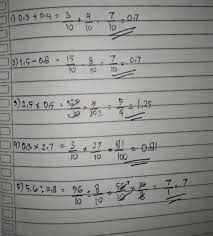 1) 0,3 + 0,4 = 3/10 + 4/10 = 7/10 = 0.7
2) 1,5 - 0.8 = 15/10 - 8/10 = 7/10 = 0.7
3) 2,5 x 0,5 = 5/4 = 1.25
4) 0,3 x 2.7 = 3/10 x 27/10 = 81/100 = 0.81
5) 5,6 : 0,8 = 56/10 : 8/10 = 7/1 = 7